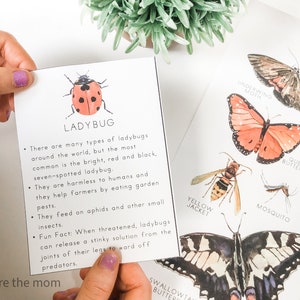 LADYBUG
• There are many types of ladybugs
around the world, but the most
common is the bright, red and black,
seven-spotted ladybug.
• They are harmless to humans and
they help farmers by eating garden
pests.
• They feed on aphids and other small
insects.
• Fun Fact: When threatened, ladybugs
can release a stinky solution from the
joints of their legs to ward off
predators.
YELLOW
JACKET
MOSQUITO
SWALLOWTAIL
re the mom